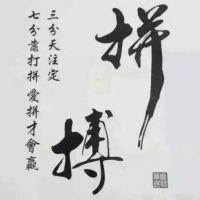 拼搏
三分天注定
七分靠打拼 愛拼才會贏